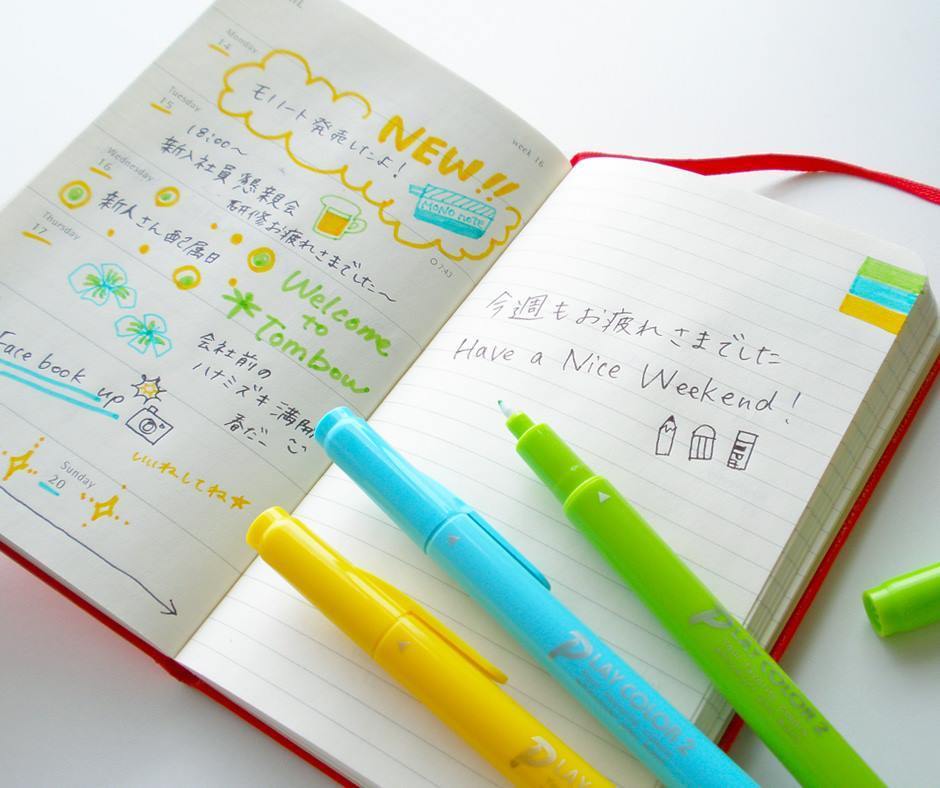 Monday
14
week 16
モノノート発売したよ!
NEW!!
MONO note
Tuesday
15
18:00〜
新入社員 懇親会
研修お疲れさまでした〜
07:43
Wednesday
16
新人さん配属日
Thursday
17
Welcome
to
Tombow
会社前の
ハナミズキ満開
春だー
Face book up
いいねしてね★
Sunday
20
今週もお疲れさまでした
Have a Nice Weekend!
PLAY COLOR 2
PLAY COLOR 2
PLAY